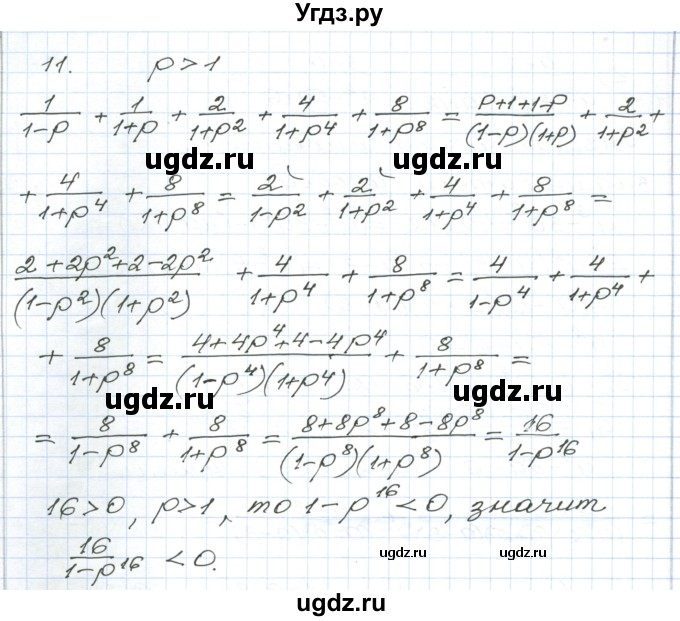 Угдз.ру
11. p > 1
1/(1-p) + 1/(1+p) + 2/(1+p²) + 4/(1+p⁴) + 8/(1+p⁸) = (p+1+1-p)/((1-p)(1+p)) + 2/(1+p²) +
+ 4/(1+p⁴) + 8/(1+p⁸) = 2/(1-p²) + 2/(1+p²) + 4/(1+p⁴) + 8/(1+p⁸) =
ugdz.ru ugdz.ru
(2+2p²+2-2p²)/((1-p²)(1+p²)) + 4/(1+p⁴) + 8/(1+p⁸) = 4/(1-p⁴) + 4/(1+p⁴) +
+ 8/(1+p⁸) = (4+4p⁴+4-4p⁴)/((1-p⁴)(1+p⁴)) + 8/(1+p⁸) =
ugdz.ru ugdz.ru
= 8/(1-p⁸) + 8/(1+p⁸) = (8+8p⁸+8-8p⁸)/((1-p⁸)(1+p⁸)) = 16/(1-p¹⁶)
16>0, p>1, то 1-p¹⁶<0, значит
16/(1-p¹⁶) < 0.
ugdz.ru ugdz.ru
ugdz.ru